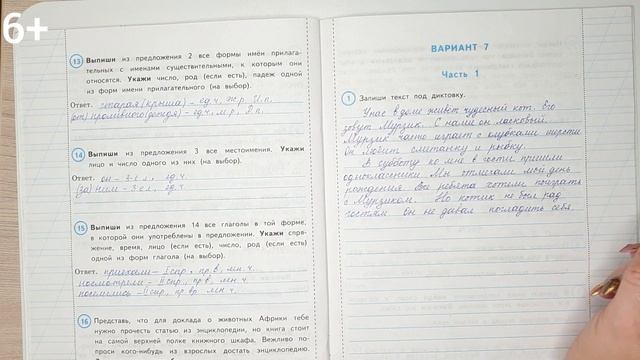 6+
13 Выпиши из предложения 2 все формы имён прилага-
тельных с именами существительными, к которым они
относятся. Укажи число, род (если есть), падеж одной
из форм имени прилагательного (на выбор).
Ответ. старая (крыша) – ед.ч., ж.р., И.п.
(от) проливного (дождя) – ед.ч., м.р., Р.п.
14 Выпиши из предложения 3 все местоимения. Укажи
лицо и число одного из них (на выбор).
Ответ. он – 3-е л., ед.ч.
(за) ним – 3-е л., ед.ч.
15 Выпиши из предложения 14 все глаголы в той форме,
в которой они употреблены в предложении. Укажи спря-
жение, время, лицо (если есть), число, род (если есть)
одной из форм глагола (на выбор).
Ответ. приехали – I спр., пр.в., мн.ч.
посмотрели – II спр., пр.в., мн.ч.
– II спр., пр.вр. мн.ч.
16 Представь, что для доклада о животных Африки тебе
нужно прочесть статью из энциклопедии, но книга стоит
на самой верхней полке книжного шкафа. Вежливо по-
проси кого-нибудь из взрослых достать энциклопедию.
ВАРИАНТ 7
Часть 1
1 Запиши текст под диктовку.
У нас в доме живёт чудесный кот. Его
зовут Мурзик. С нами он ласковый.
Мурзик часто играет с клубками шерсти
Он любит сметанку и рыбку.
В субботу ко мне в гости пришли
одноклассники. Мы отмечали мой день
рождения. Все ребята хотели поиграть
с Мурзиком. Но котик не был рад
гостям. Он не давал погладить себя.